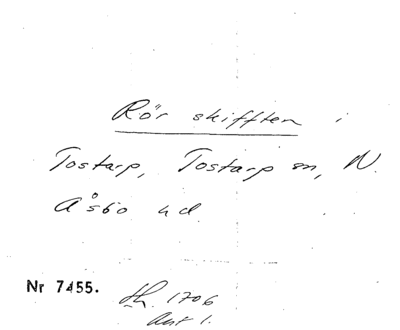 Rör skifften i
Tostarp, Tostarp sn, N.
Åsbo hd
Nr 7455.
1706